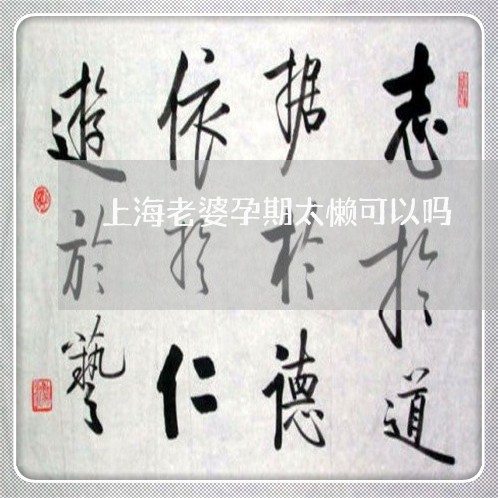 志於道
据於德
依於仁
遊於藝
上海老婆孕期太懒可以吗